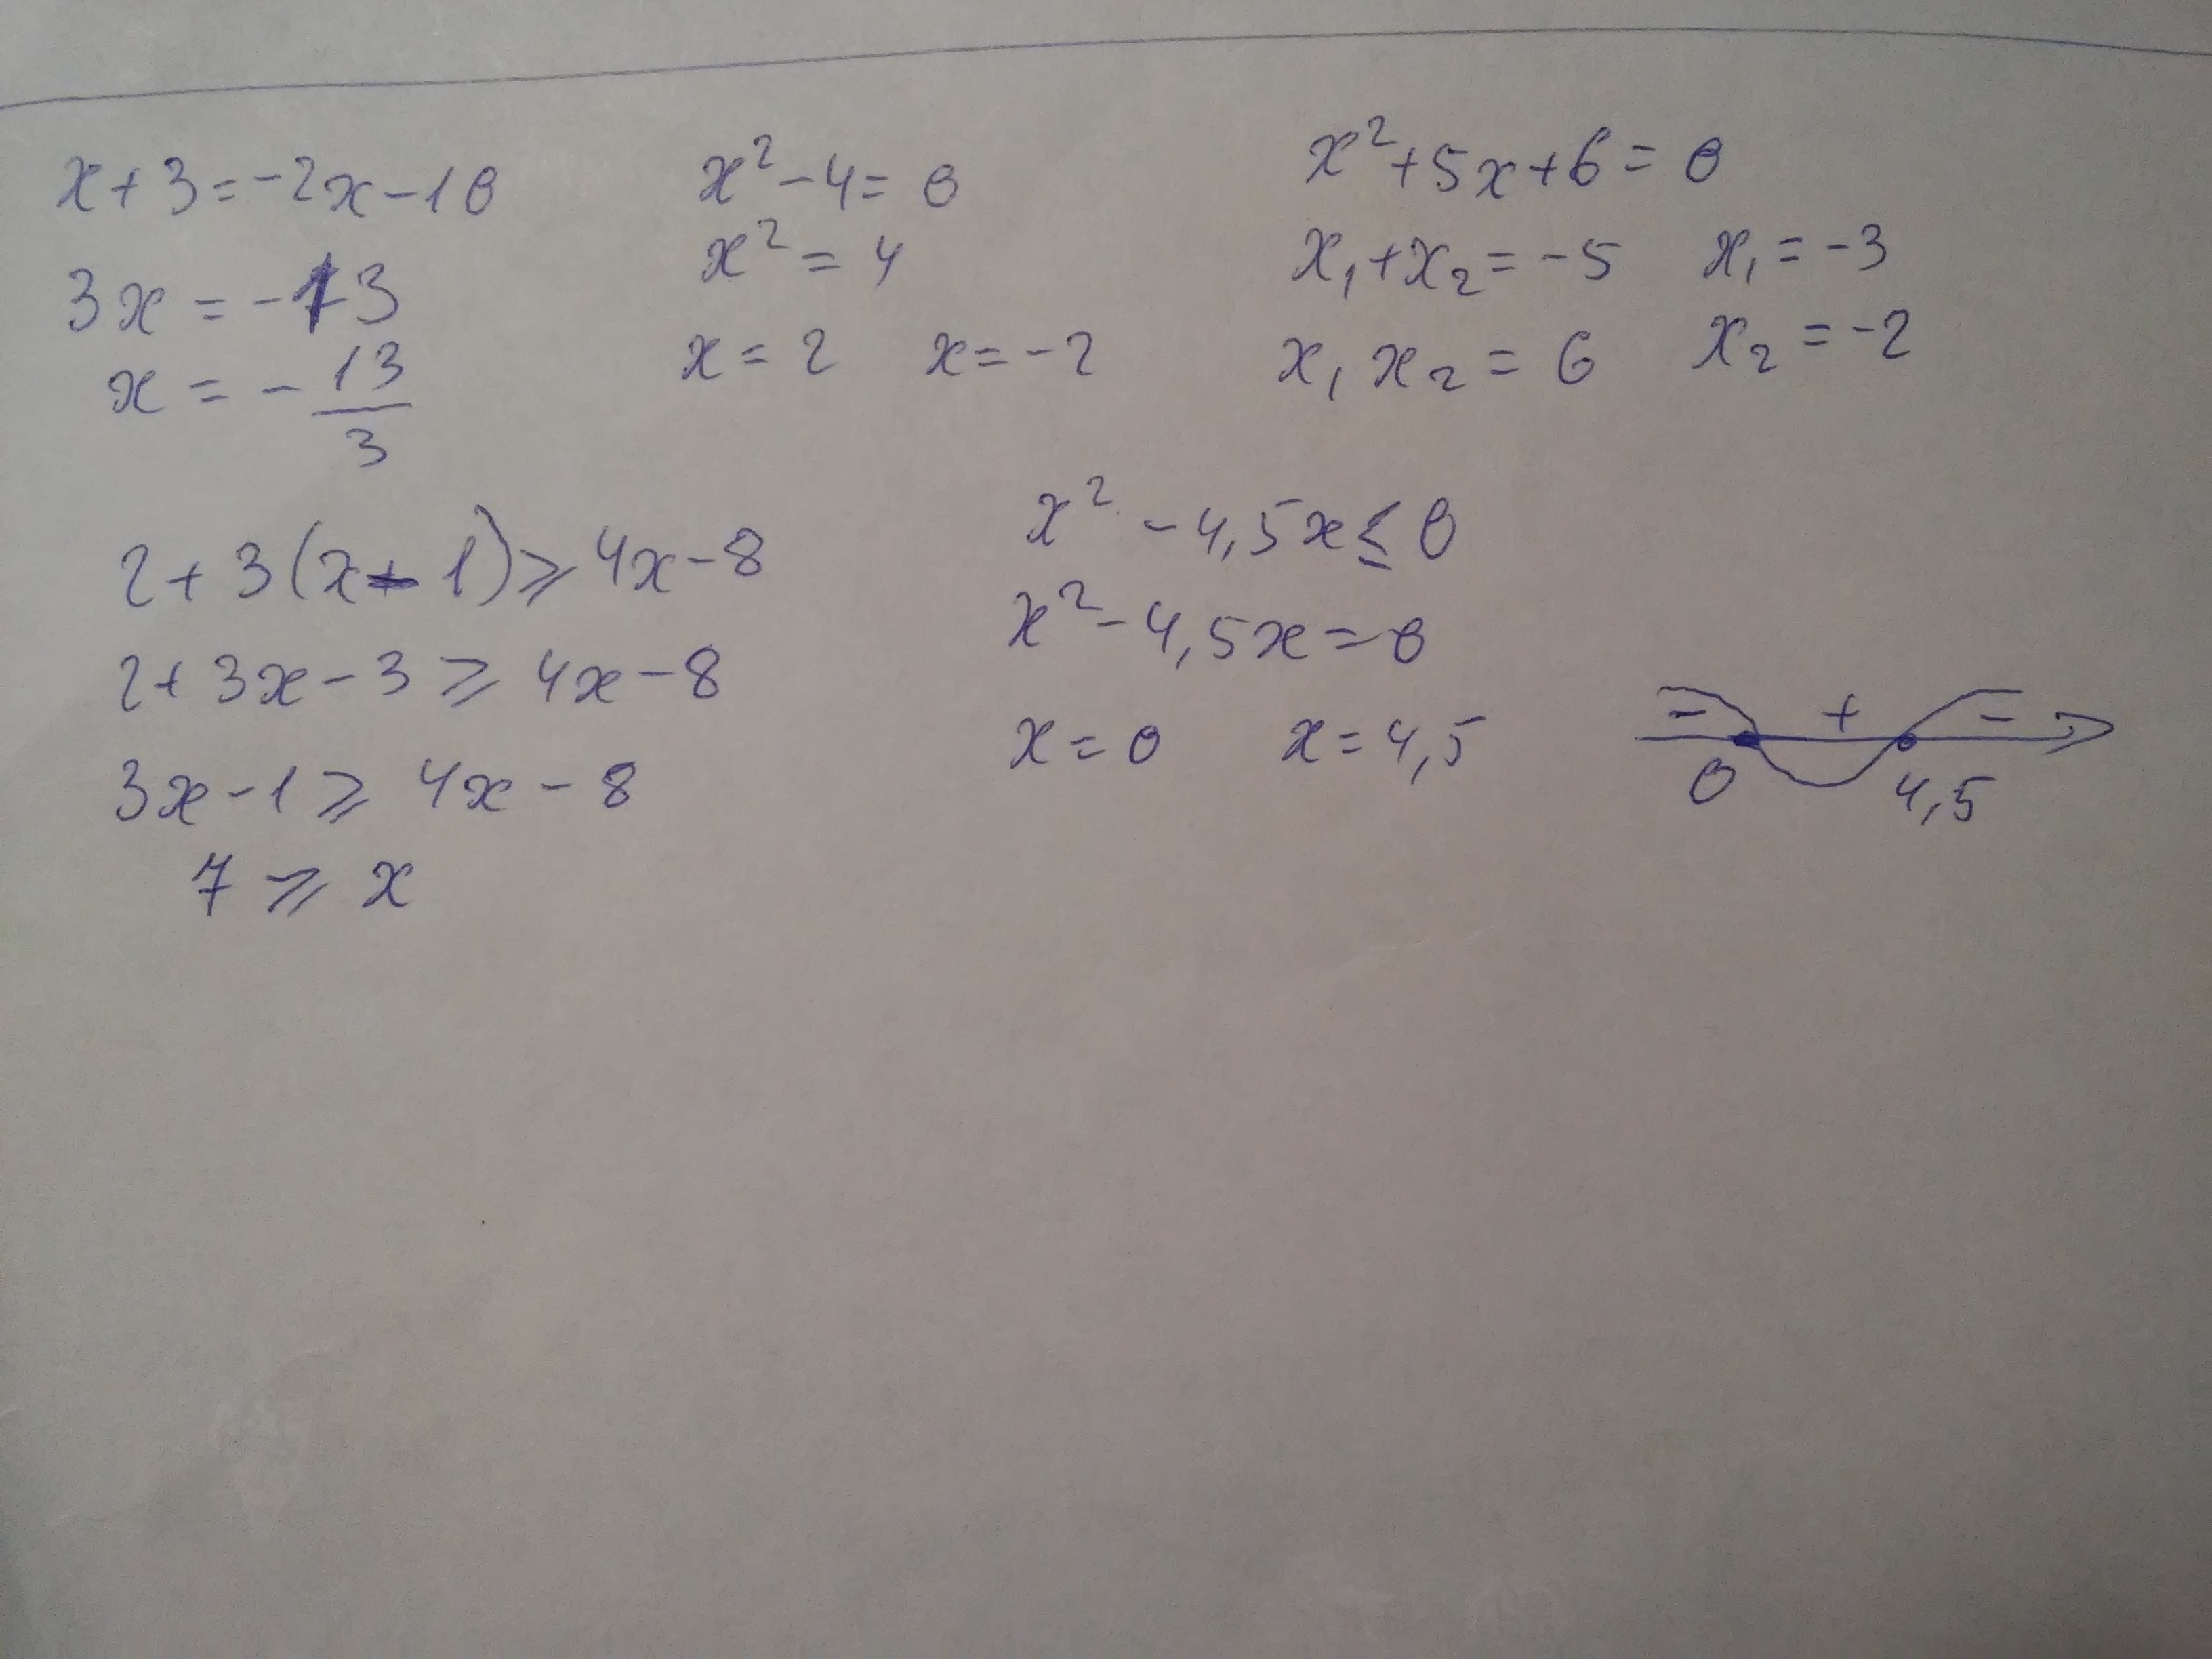 x+3=-2x-10
3x=-13
x=-13/3
x²-4=0
x²=4
x=2 x=-2
x²+5x+6=0
x₁+x₂=-5 x₁=-3
x₁x₂=6 x₂=-2
2+3(x-1)⩾4x-8
2+3x-3⩾4x-8
3x-1⩾4x-8
7⩾x
x²-4,5x≤0
x²-4,5x=0
x=0 x=4,5
- + -
0 4,5